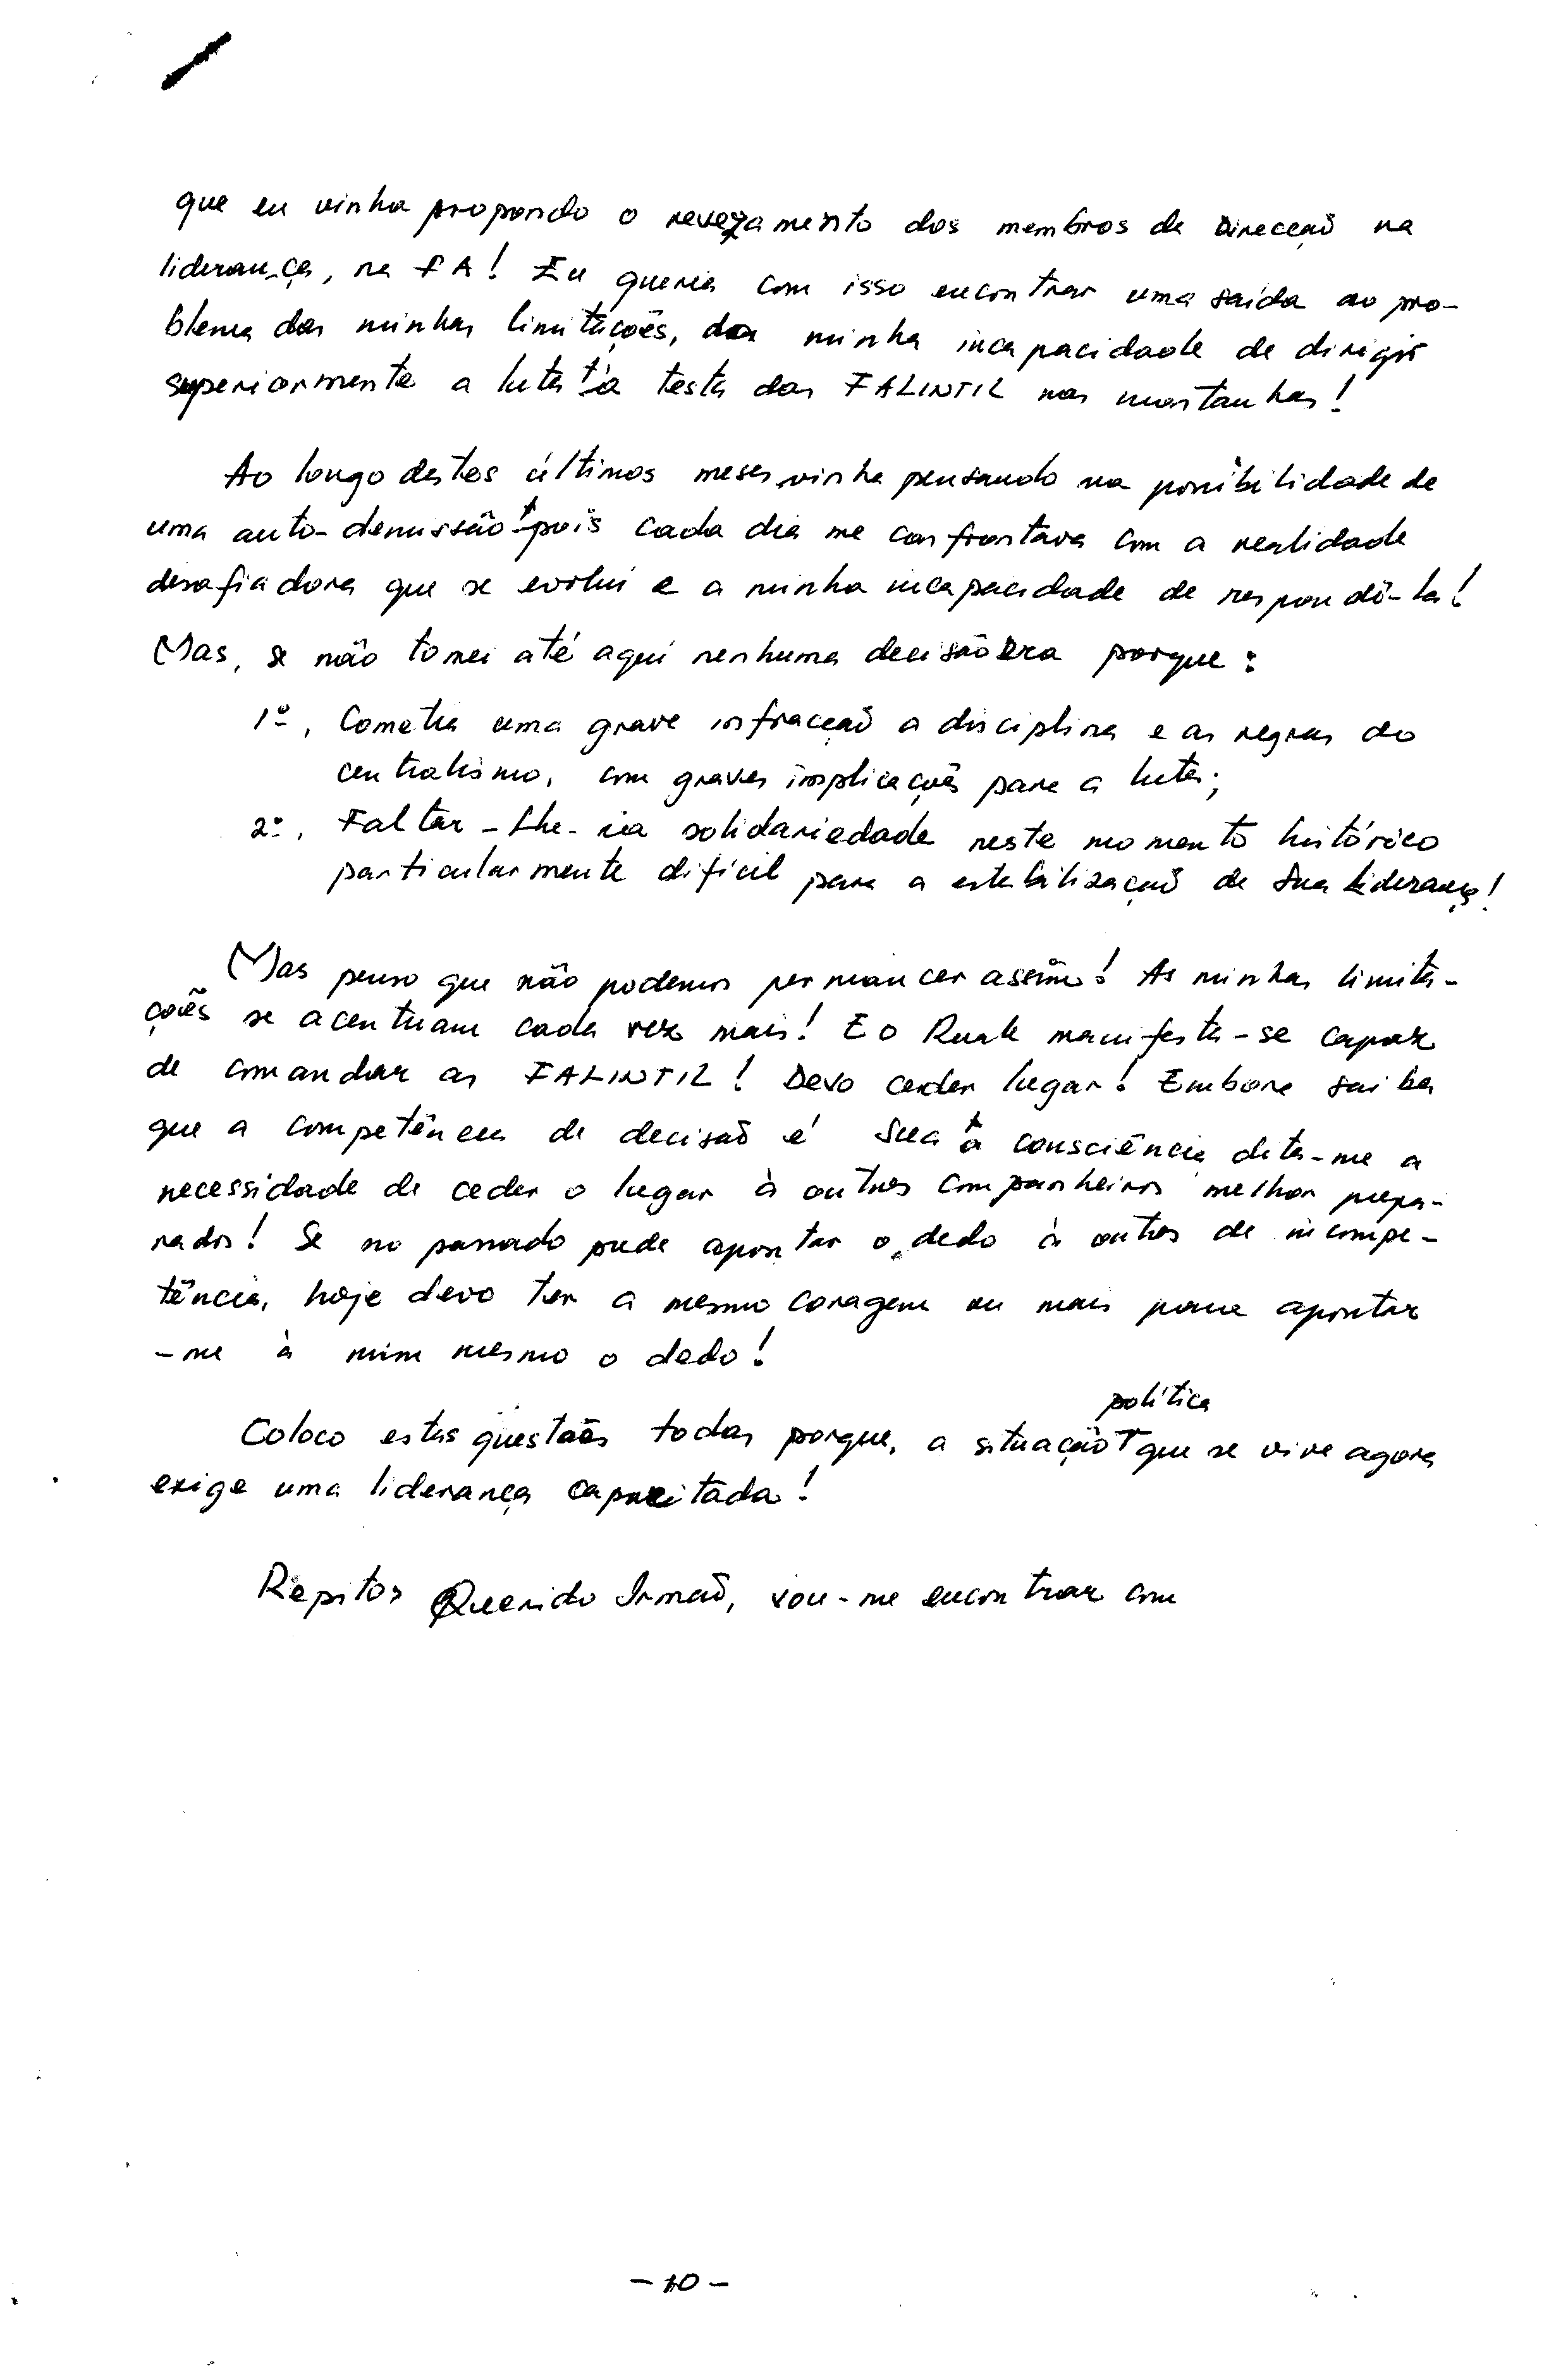 que eu vinha propondo o revezamento dos membros de Direcção na
liderança, na FA! Eu queria com isso encontrar uma saída ao pro-
blema das minhas limitações, da minha incapacidade de dirigir
superiormente a luta à testa das FALINTIL nas montanhas!
Ao longo destes últimos meses vinha pensando na possibilidade de
uma auto-demissão pois cada dia me confrontava com a realidade
desafiadora que se evolui e a minha incapacidade de respondê-la!
Mas, se não tomei até aqui nenhuma decisão era porque:
1º, Cometia uma grave infracção a disciplina e as regras do
centralismo, com graves implicações para a luta;
2º, Faltar-Lhe-ia solidariedade neste momento histórico
particularmente difícil para a estabilização de Sua liderança!
Mas penso que não podemos permanecer assim! As minhas limita-
ções se acentuam cada vez mais! E o Ruak manifesta-se capaz
de comandar as FALINTIL! Devo ceder lugar! Embora saiba
que a competência de decisão é Sua a consciência dita-me a
necessidade de ceder o lugar à outros companheiros melhor prepa-
rados! Se no passado pude apontar o dedo à outros de incompe-
tência, hoje devo ter a mesmo coragem ou mais para apontar
-me à mim mesmo o dedo!
política
Coloco estas questões todas porque, a situação que se vive agora
exige uma liderança capacitada!
Repito, Querido Irmão, vou-me encontrar com
- 10 -